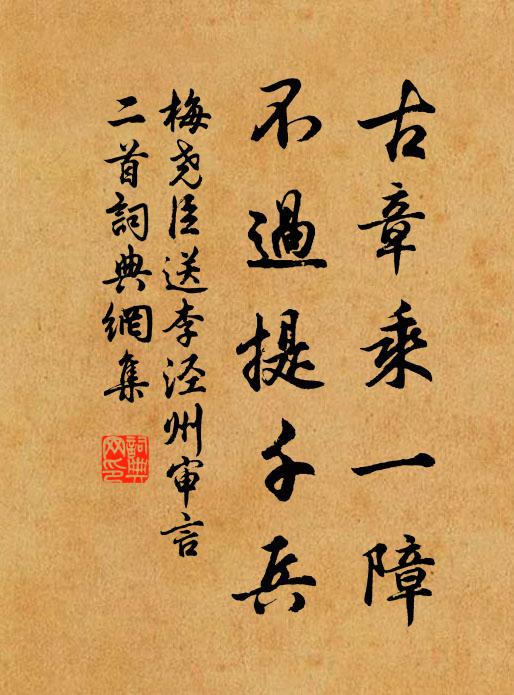 古章乘一障
不過提千兵
梅尧臣送李泾州审言
二首詞典網集
詞典网印